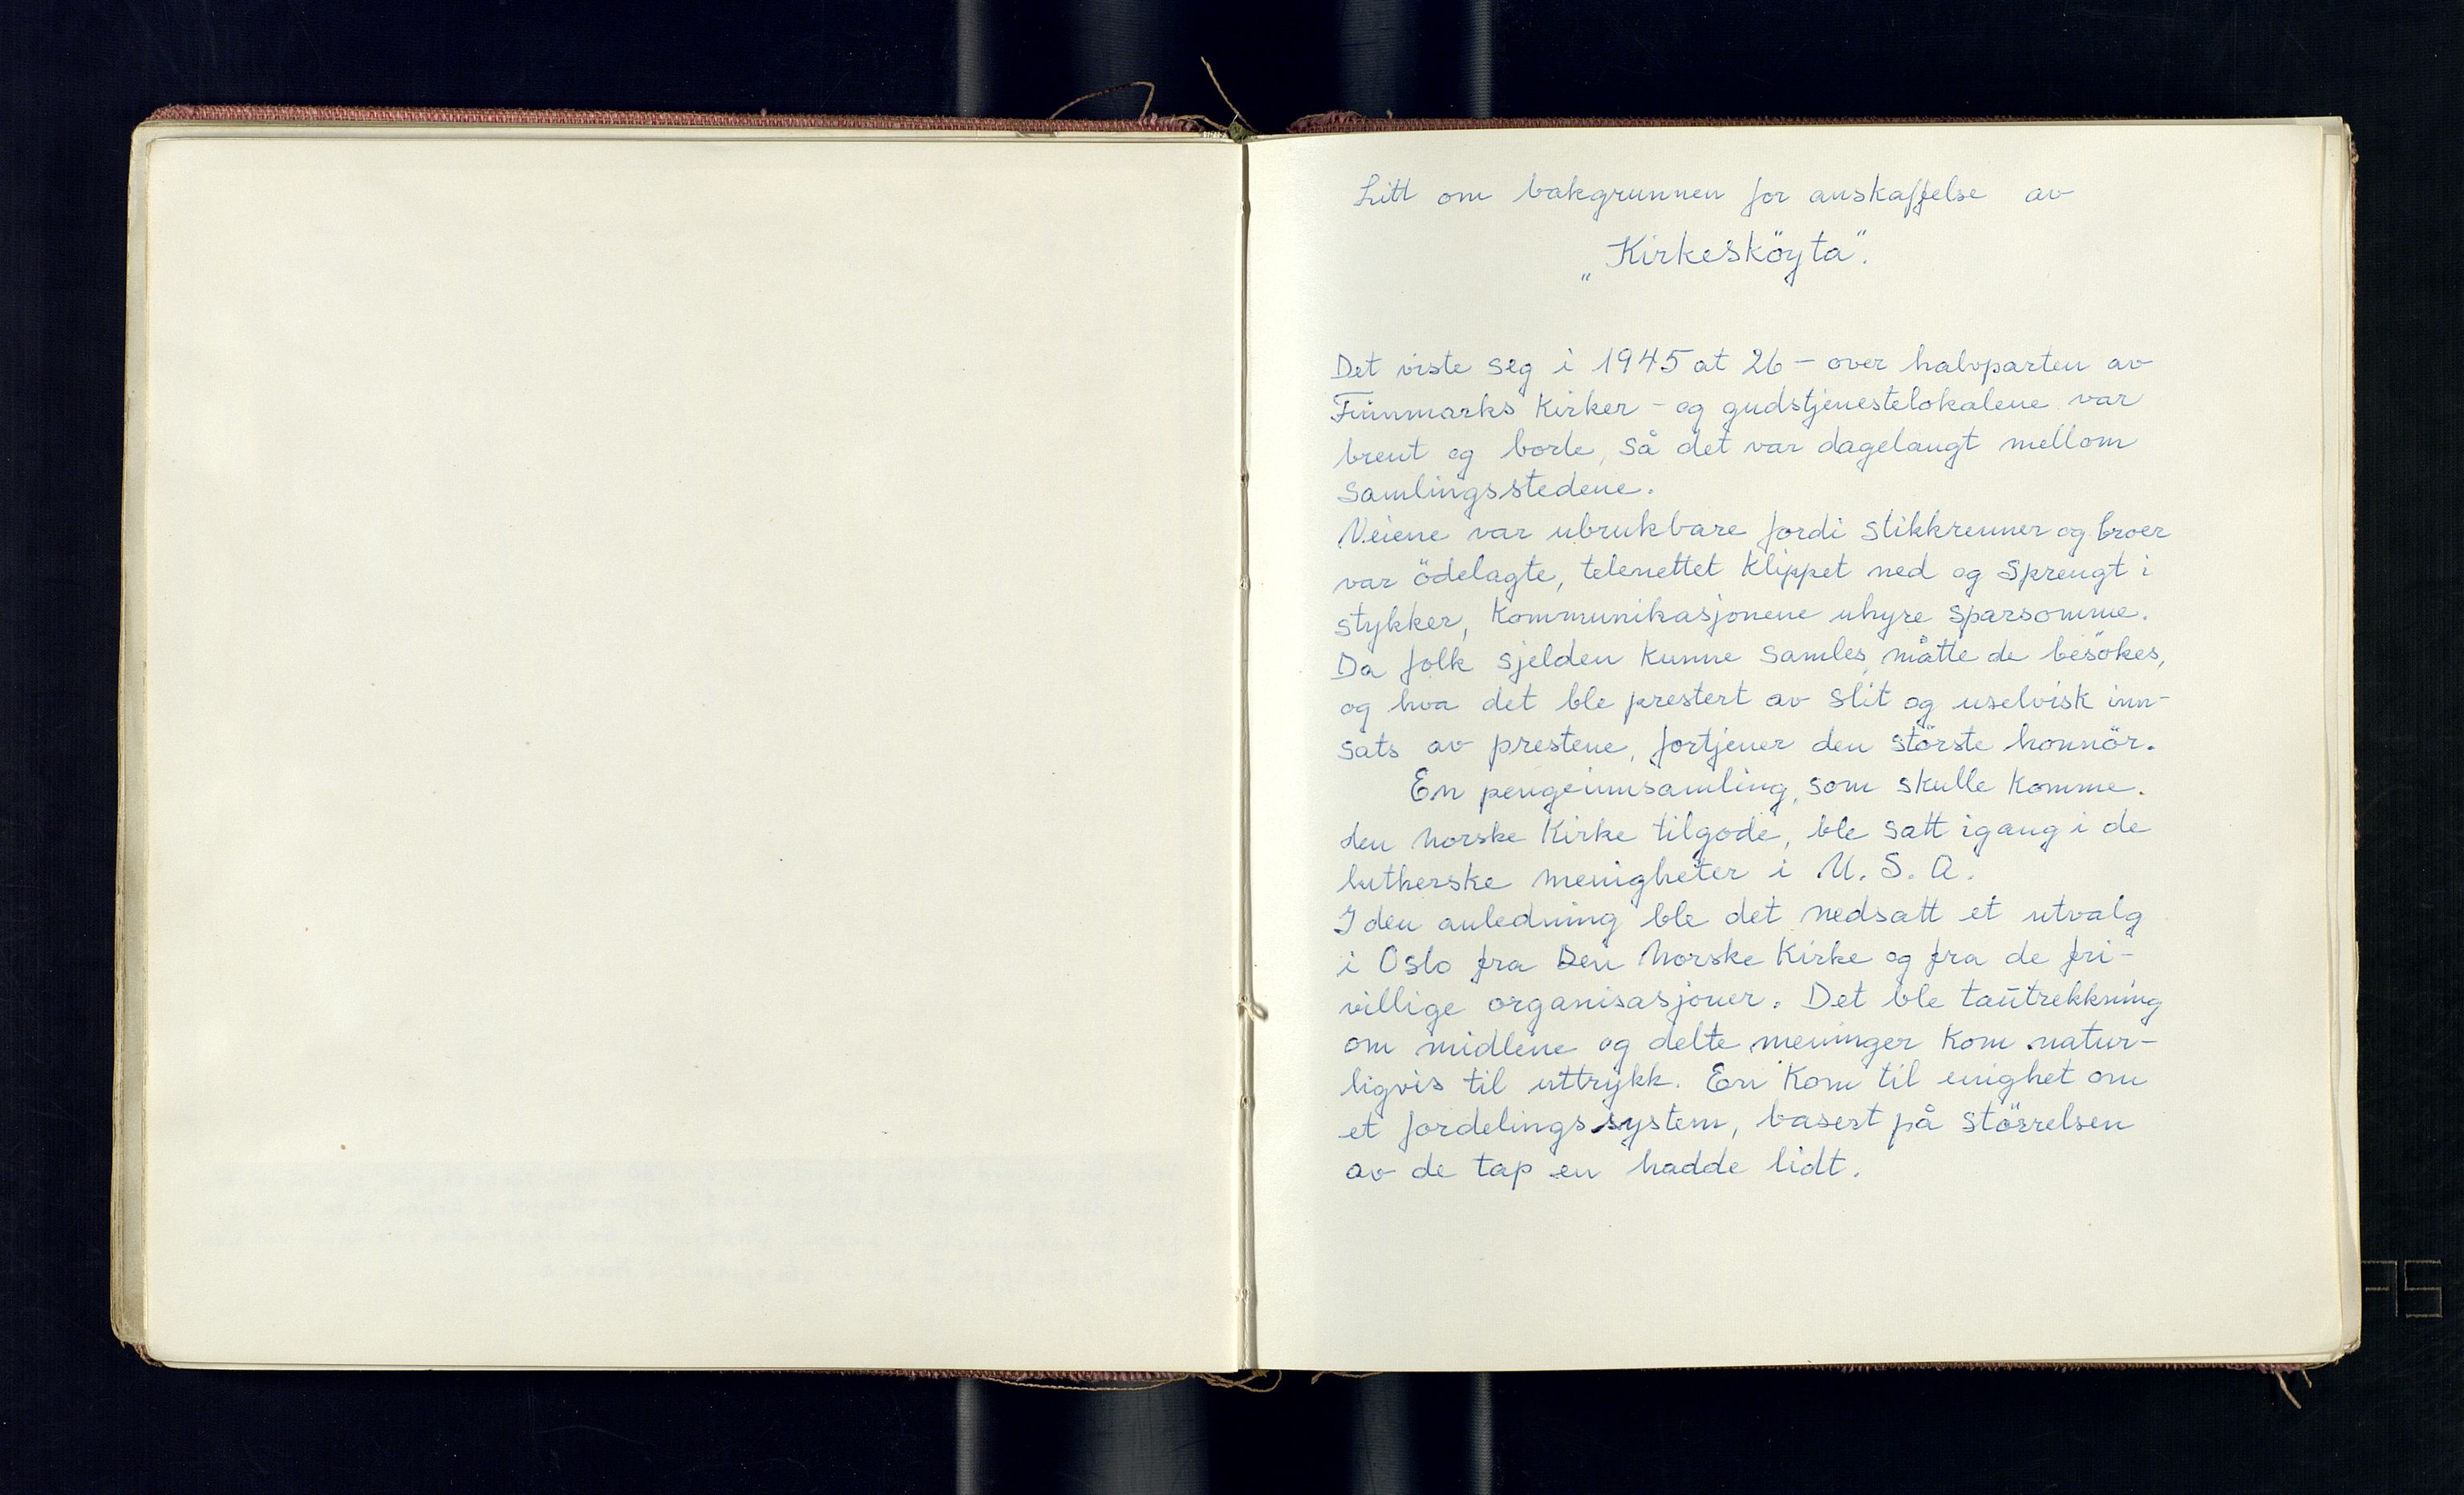 Litt om bakgrunnen for anskaffelse av
„Kirkesköyta".
Det viste seg i 1945 at 26 - over halvparten av
Finnmarks Kirker - og gudstjenestelokalene var
brent og borte, så det var dagelangt mellom
samlingsstedene.
Veiene var ubrukbare fordi stikkrenner og broer
var ödelagte, telenettet klippet ned og sprengt i
stykker, kommunikasjonene uhyre sparsomme.
Da folk sjelden kunne samles, måtte de besökes,
og hva det ble prestert av slit og uselvisk inn-
sats av prestene, fortjener den störste honnör.
En pengeinnsamling, som skulle komme.
den norske Kirke tilgode, ble satt igang i de
lutherske menigheter i U. S. A.
I den anledning ble det nedsatt et utvalg
i Oslo fra Den Norske Kirke og fra de fri-
villige organisasjoner. Det ble tautrekkning
om midlene og delte meninger kom natur-
ligvis til uttrykk. En kom til enighet om
et fordelingssystem, basert på störrelsen
av de tap en hadde lidt.